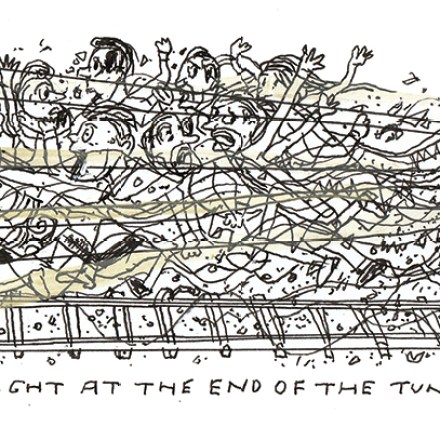 GHT AT THE END OF THE TUN